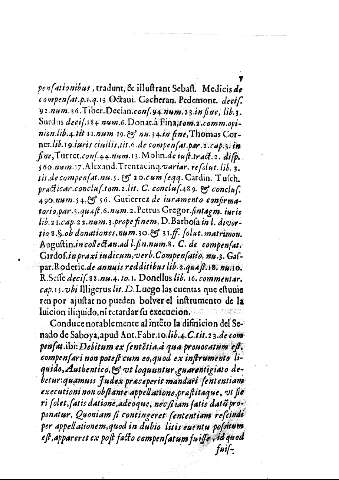 7
pensationibus, tradunt, & illustrant Sebast. Medicis de
compensat. p. 1. q. 15 Octaui. Cacheran. Pedemont. decis.
92. num. 36. Tiber. Decian. cons. 94. num. 23. in fine, lib. 3.
Surdus decis. 184 num. 6. Donat. à Fina, tom. 2. comm. opi-
nion. lib. 4. tit 11. num 19. & nu. 34. in fine, Thomas Cor-
net. lib. 19. iuris ciuilis, tit. 6. de compensat. par. 2. cap. 3. in
fine, Turret. cons. 44. num. 13. Molin. de iust. tract. 2. disp.
560. num. 17. Alexand. Trentacinq. variar. resolut. lib. 3.
tit. de compensat. nu. 5. & 20. cum seqq. Cardin. Tusch.
practicar. conclus. tom. 2. lit. C. conclus. 489. & conclus.
490. num. 54. & 56. Gutierrez de iuramento confirma-
torio, par. 3. quæst. 6. num. 2. Petrus Gregor. sintagm. iuris
lib. 21. cap. 22. num. 3. prope finem. D. Barbosa in l. diuor-
tio 8. §. ob donationes, num. 30. & 31. ff. solut. matrimon.
Augustin. in collectan. ad l. fin. num. 8. C. de compensat.
Cardos. in praxi iudicum, verb. Compensatio. nu. 3. Gas-
par. Roderic. de annuis redditibus lib. 2. quæst. 18. nu. 10.
R. Sesse decis. 82. nu. 4. to. 1. Donellus lib. 16. commentar.
cap. 15. vbi Illigerus lit. D. Luego las cuentas que estuuie
ren por ajustar no pueden boluer el instrumento de la
luicion iliquido, ni retardar su execucion.
Conduce notablemente al inteto la difinicion del Se-
nado de Saboya, apud Ant. Fabr. 10. lib. 4. C. tit. 23. de com
pensat. ibi: Debitum ex sentetia, à qua prouocatum est,
compensari non potest cum eo, quod ex instrumento li-
quido, Authentico, & vt loquuntur, guarentigiato de-
betur: quamuis Iudex præceperit mandari sententiam
executioni non obstante appellatione, præstitaque, vt fie
ri solet, satis datione, adeoque, nec si iam satis datũ pro-
ponatur. Quoniam si contingeret sententiam rescindi
per appellationem, quod in dubio litis euentu positum
est, appareret ex post facto compensatum fuisse, id quod
fuis-